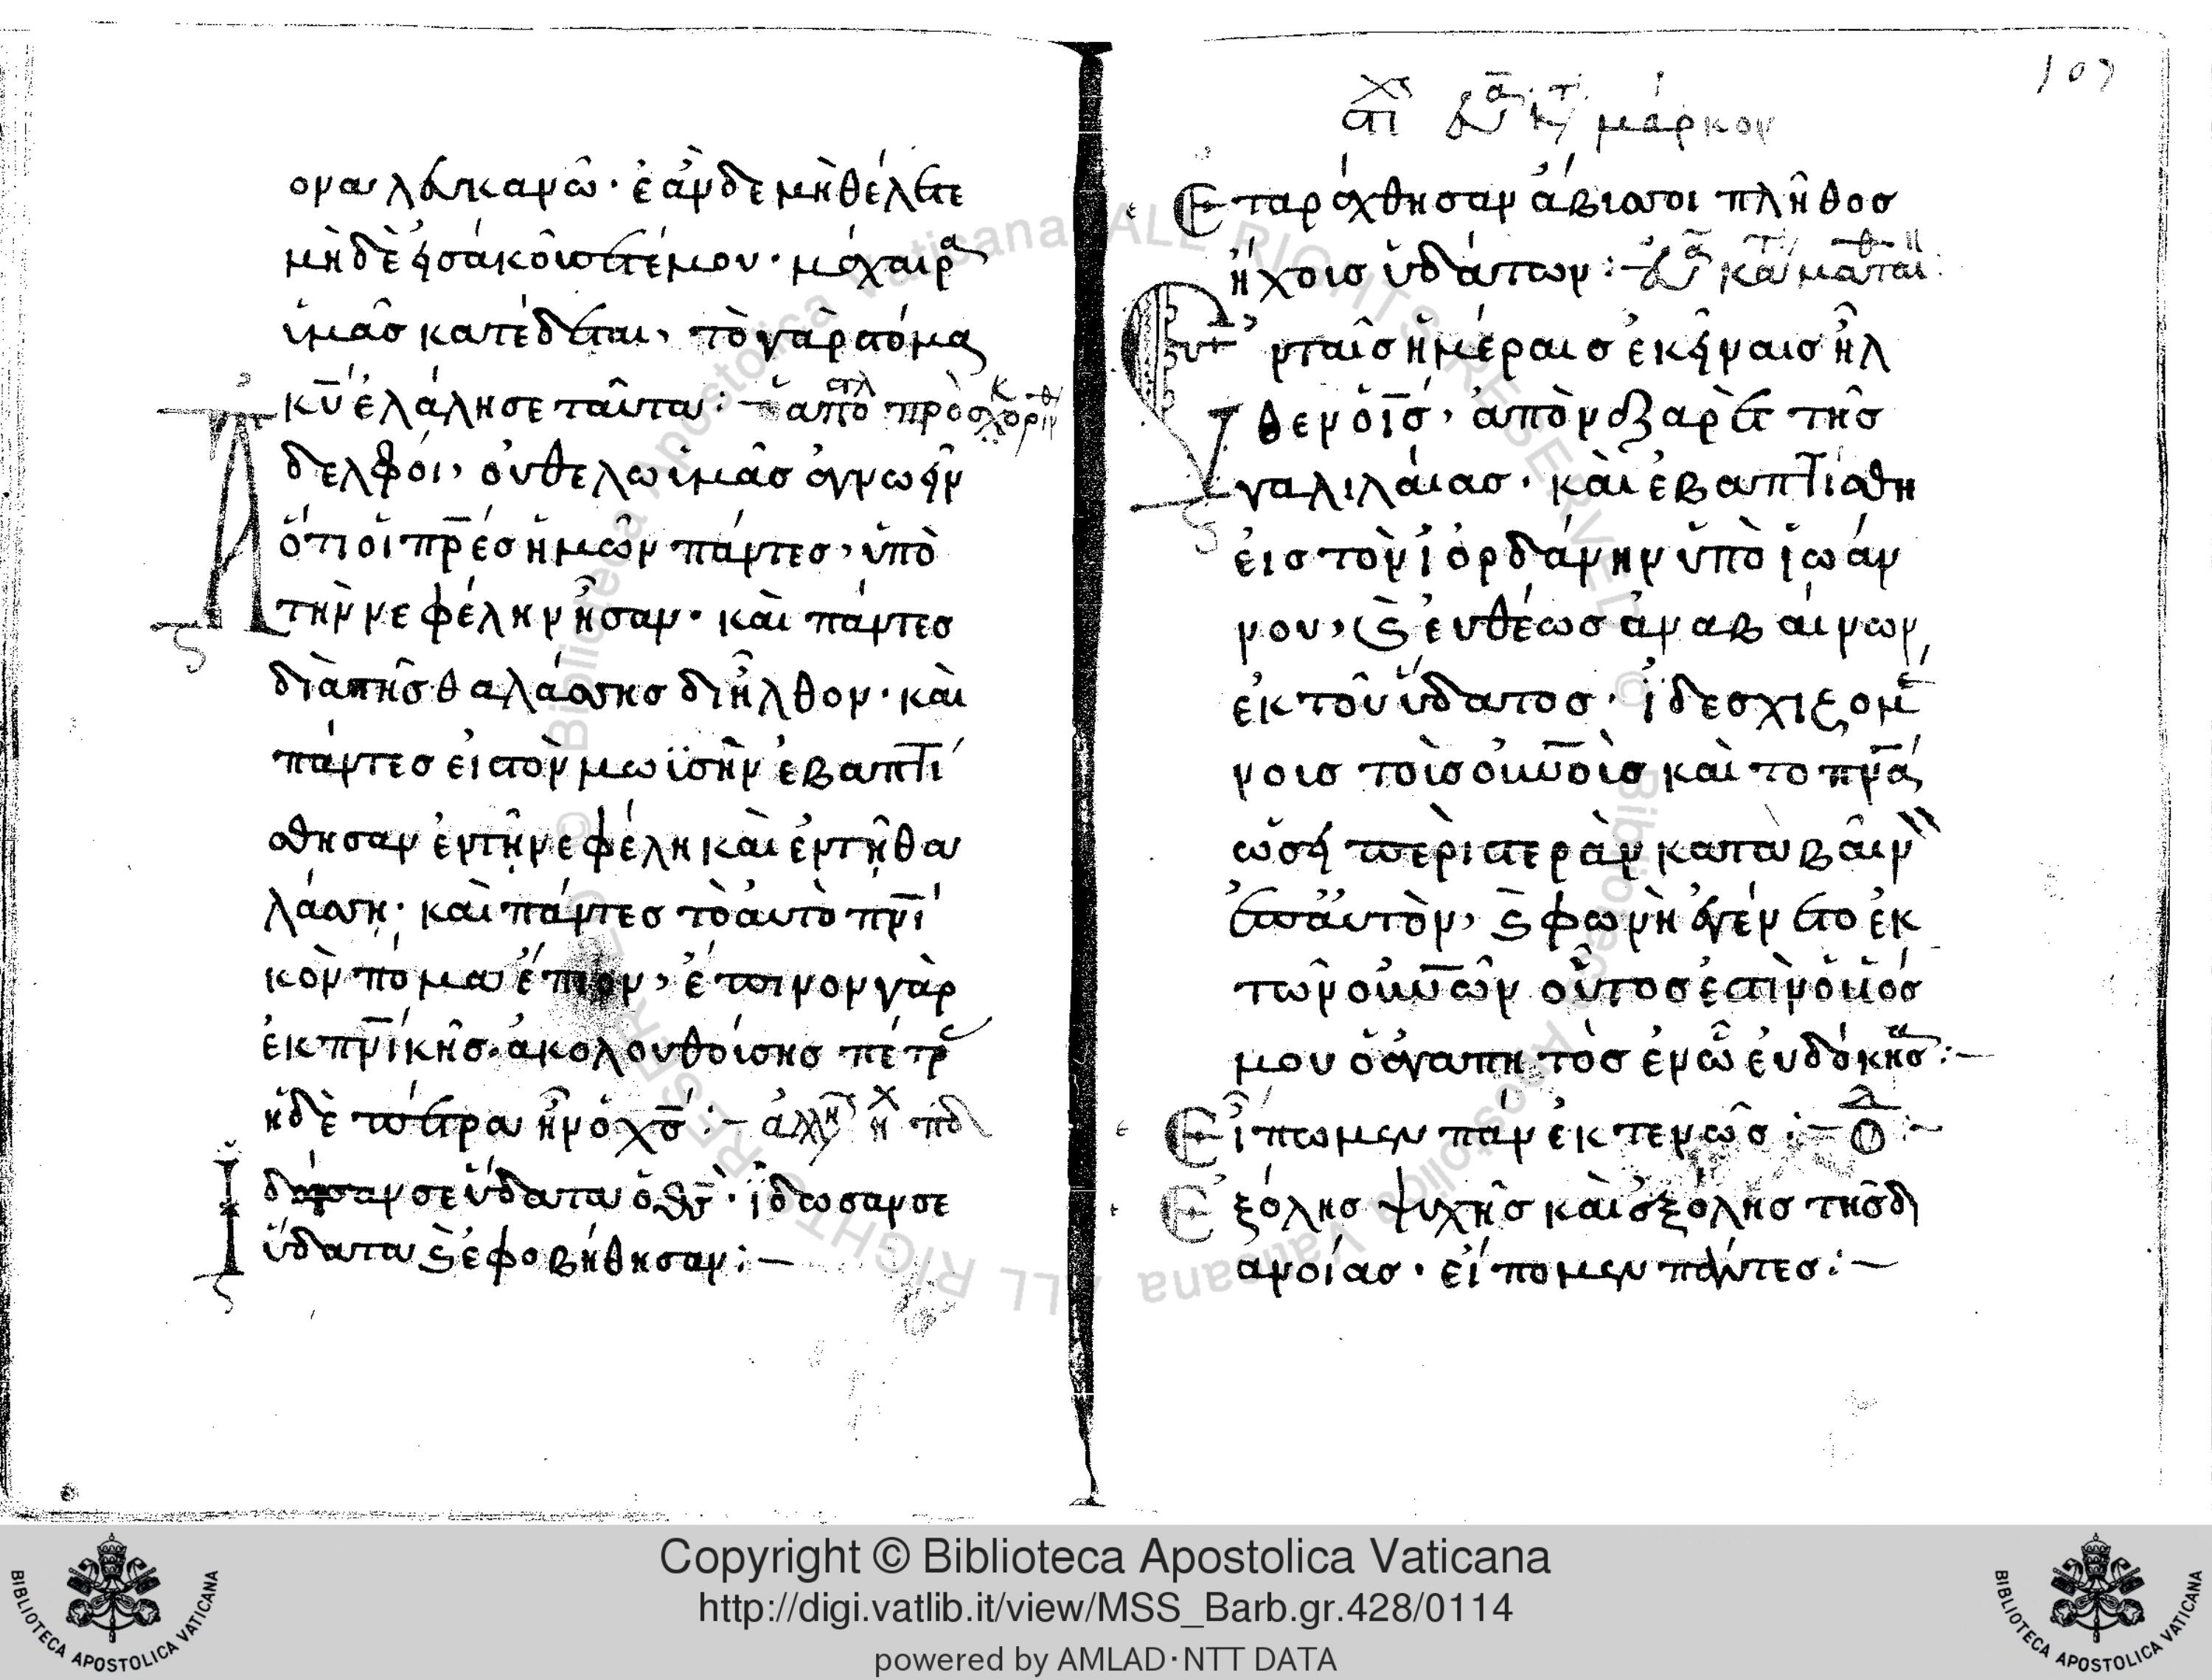 ονα λευκανῶ· ἐὰν δὲ μὴ θέλετε
μὴδὲ εἰσάκούσετέ μου· μάχαιρα
ὑμᾶσ κατέδεται, τὸ γὰρ στόμα
κ̅υ̅ ἐλάλησε ταῦτα:– ἀπὸστλ πρὸσ κορινθ
Α δελφοί, οὐ θελω ὑμᾶσ ἀγνωεῖν
ὅτι οἱ π̅ρ̅έσ ἡμῶν πάντεσ, ὑπὸ
τὴν νεφέλην ἦσαν· καὶ πάντεσ
διὰ τῆσ θαλάσσησ διῆλθον· καὶ
πάντεσ εἰσ τὸν μωϊσὴν ἐβαπτί
σθησαν ἐν τῆ νεφέλη καὶ ἐν τῆ θα
λάσση· καὶ πάντεσ τὸ αὐτὸ π̅ν̅ι
κὸν πόμα ἔπιον, ἔπινον γὰρ
ἐκ π̅ν̅ικῆσ ἀκολουθούσησ πέτρ
ἡ δὲ πέτρα ἦν ὁ χ̅σ̅:–
Ἴ δοσαν σε ὕδατα ὁ θ̅σ̅· ἴδωσαν σε
ὕδατα ϗ ἐφοβήθησαν:–
107
στι χσ μάρκον
Ε ταράχθησαν ἄβυσσοι πλῆθοσ
ἤχοισ ὑδάτων:–
Εν ταῖσ ἡμέραισ ἐκείναισ ἦλ
θεν ὁ ι̅σ̅, ἀπὸ ναζαρὲτ τῆσ
γαλιλαίασ· καὶ ἐβαπτίσθη
εἰσ τὸν ἰορδάνην ὑπὸ ἰωάν
νου, ϗ εὐθέωσ ἀναβαίνων
ἐκ τοῦ ὕδατοσ· ἰδε σχιζομέ
νοισ τοὶσ οὐνοὶσ καὶ το π̅ν̅ά
ὡσεὶ περιστερὰν καταβαῖν
ἐπ αὐτὸν, ϗ φωνὴ ἐγένετο ἐκ
τῶν οὐνῶν οὗτοσ ἐστὶν ὁ ὑ̅ό̅σ
μου ὁ ἀγαπητὸσ ἐν ὧ εὐδόκησα:–
Εἴπωμεν πάν ἐκτενῶσ:– Ο:–
Ἐξ όλησ ψυχῆσ καὶ ἐξ όλησ τῆσ δι
ανοίασ· εἴπομεν πάντεσ:–
Copyright © Biblioteca Apostolica Vaticana
http://digi.vatlib.it/view/MSS_Barb.gr.428/0114
powered by AMLAD·NTT DATA
BIBLIOTECA APOSTOLICA VATICANA
BIBLIOTECA APOSTOLICA VATICANA